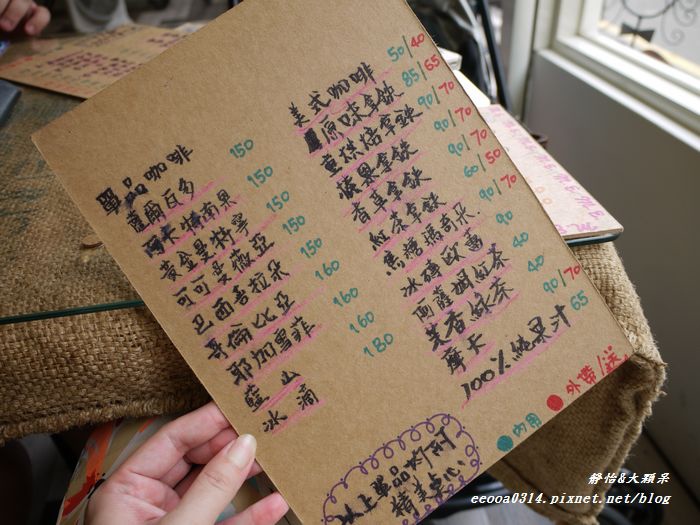 單品咖啡
薩爾瓦多 150
阿米特南果 150
黃金曼特寧 150
可可曼薇亞 150
巴西喜拉朵 150
哥倫比亞 160
耶加雪菲 160
藍山 160
冰滴 180
美式咖啡 50/40
原味拿鐵 85/65
重烘焙拿鐵 90/70
榛果拿鐵 90/70
香草拿鐵 90/70
紅茶拿鐵 60/50
焦糖瑪奇朵 90/70
冰磚歐蕾 90
阿薩姆紅茶 40
芙香綠茶 40
摩卡 90/70
100%純果汁 65
●內用 ●外帶/送
以上單品附阿
精美点心
靜怡&大顆呆
eeooa0314.pixnet.net/blog